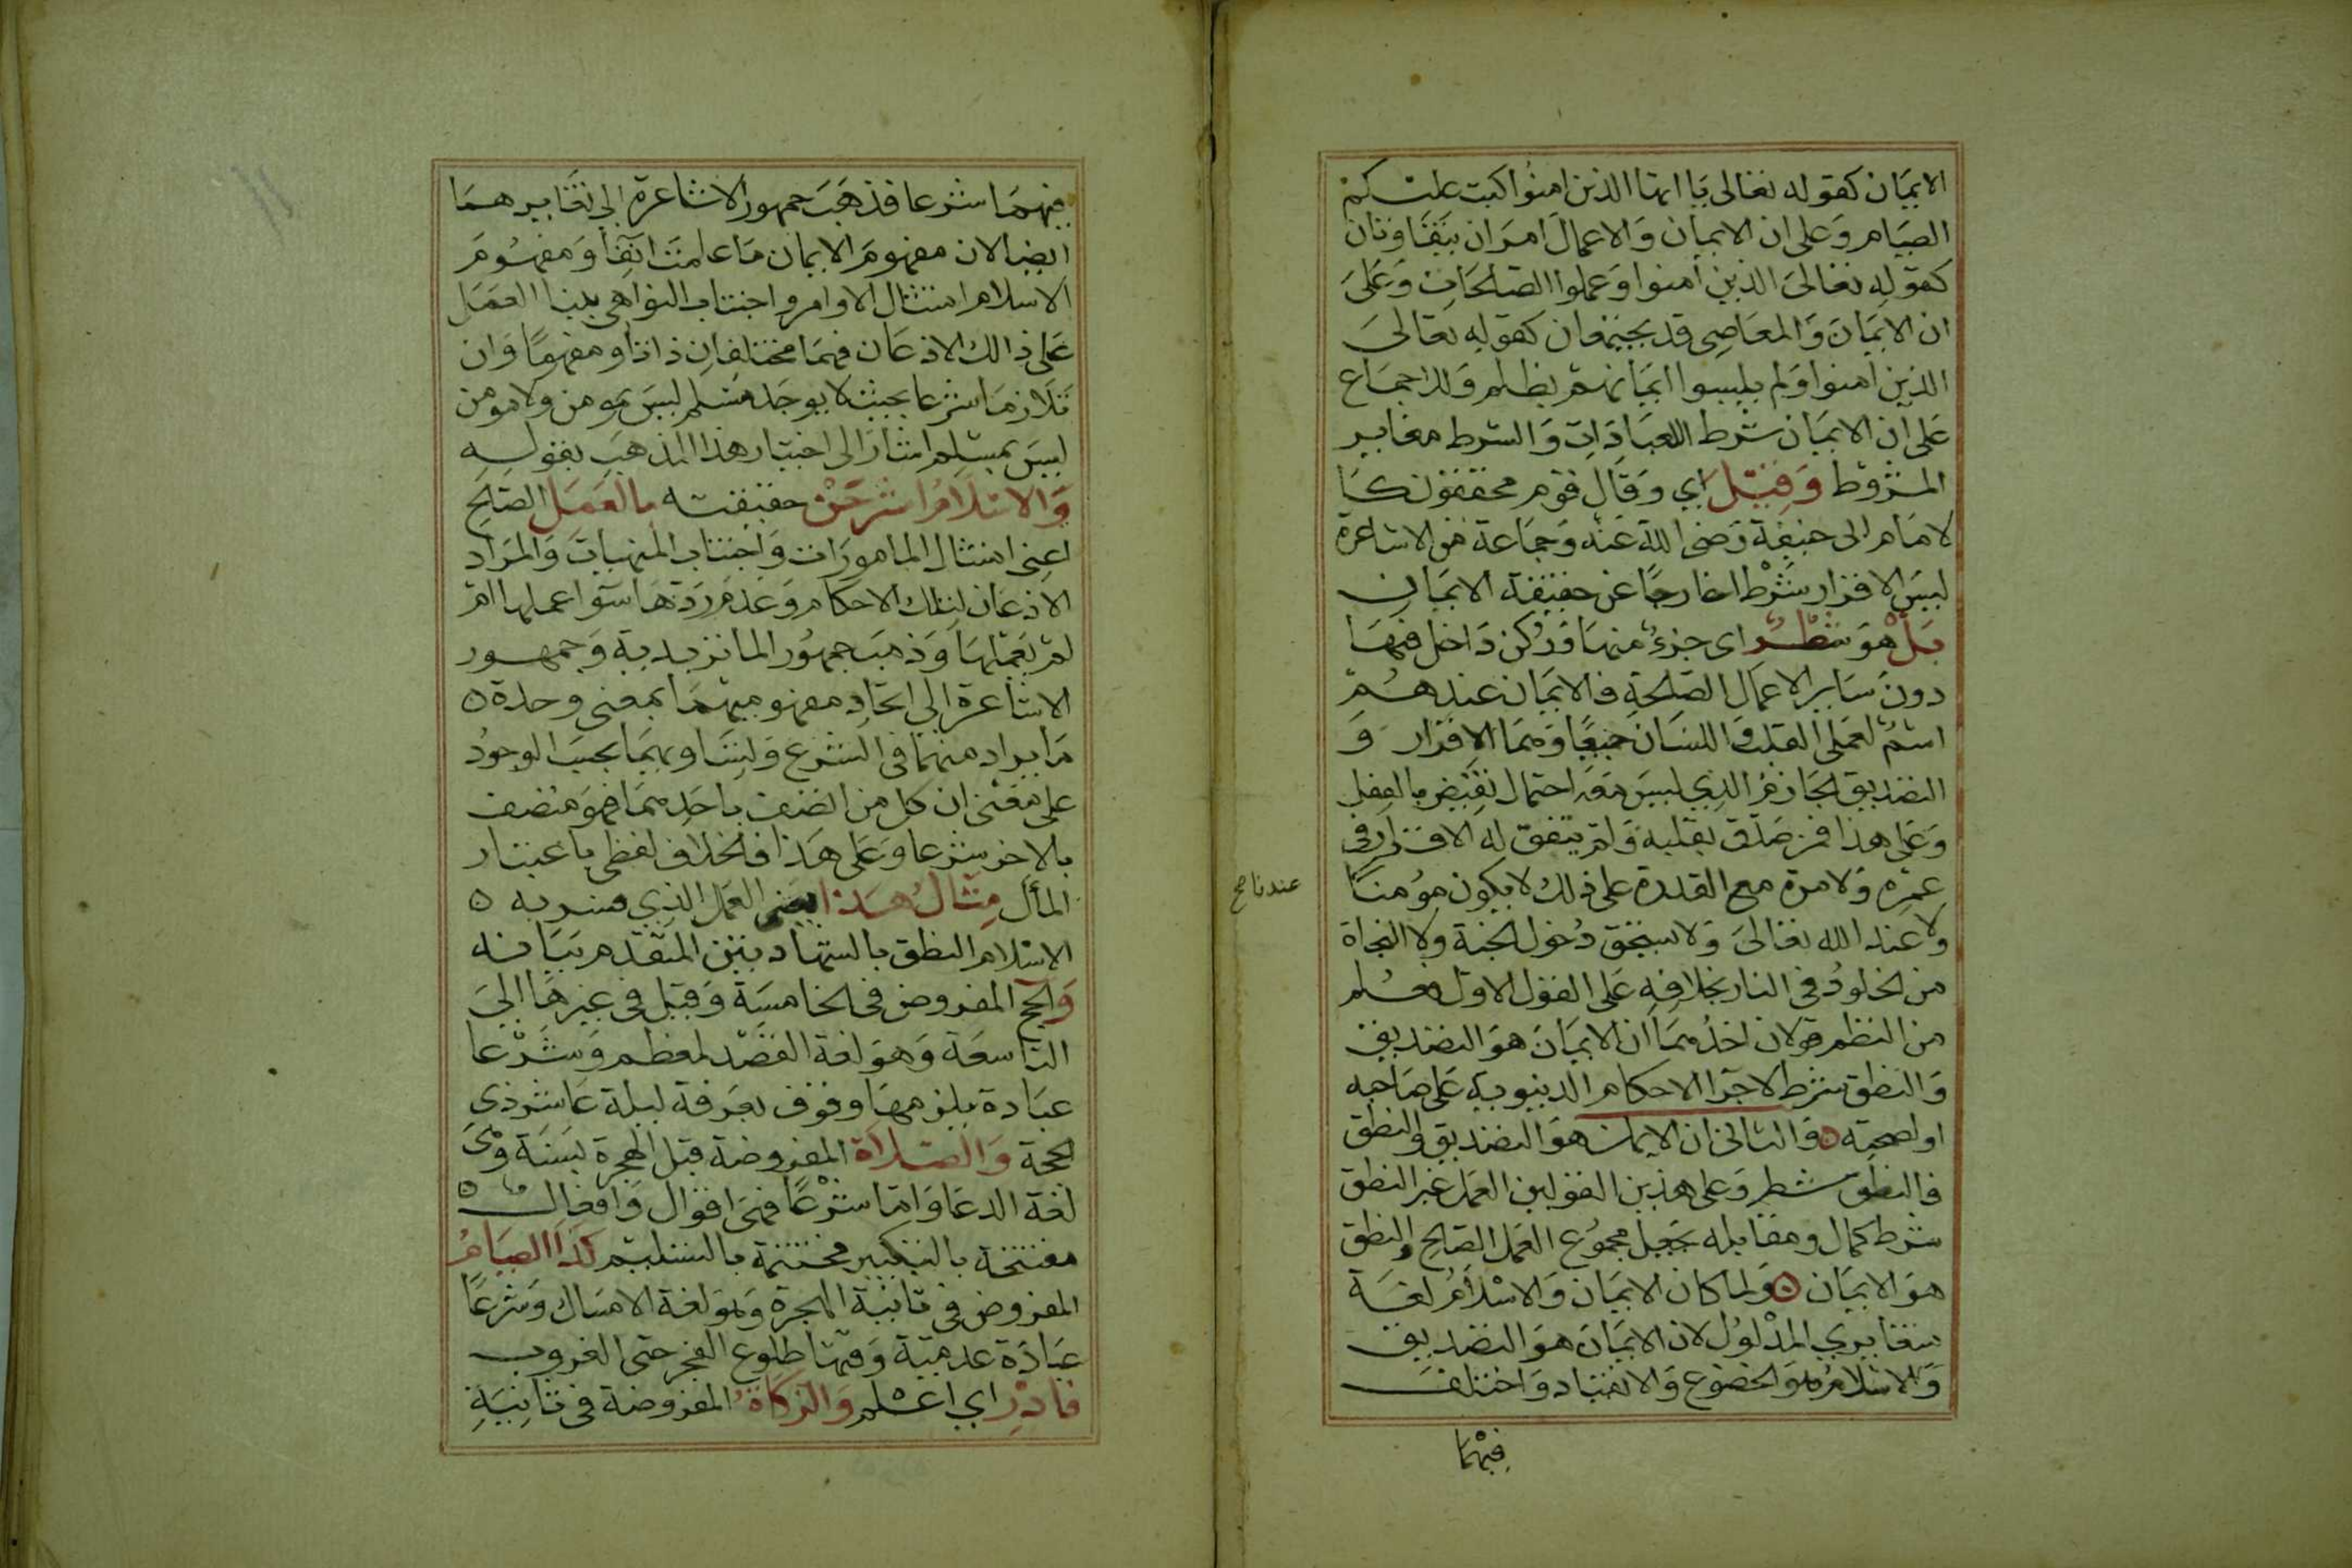 الايمان كقوله تعالى يا ايها الذين امنوا كتب عليكم
الصيام وعلى ان الايمان والاعمال امران يتفاوتان
كقوله تعالى الذين امنوا وعملوا الصالحات وعلى
ان الايمان والمعاصى قد يجتمعان كقوله تعالى
الذين امنوا ولم يلبسوا ايمانهم بظلم وللاجماع
على ان الايمان شرط للعبادات والشرط مغاير
المشروط وقيل اي وقال قوم محققون كا
لامام ابى حنيفة رضى الله عنه وجماعة من الاشاعرة
ليس الاقرار شرطا خارجا عن حقيقة الايمان
بل هو شطر اى جزء منها وركن داخل فيها
دون ساير الاعمال الصالحة فالايمان عندهم
اسم لعملى القلب واللسان جميعا وهما الاقرار و
التصديق الجازم الذي ليس معه احتمال نقيض بالفعل
وعلى هذا فمن صدق بقلبه ولم يتفق له الاقرار فى
عمره ولا مرة مع القدرة على ذلك لا يكون مؤمنا
عندنا صح
ولا عند الله تعالى ولا يستحق دخول الجنة ولا النجاة
من الخلود فى النار بخلافه على القول الاول فعلم
من النظم قولان احدهما ان الايمان هو التصديق
والنطق شرط لاجرا الاحكام الدنيوية على صاحبه
او لصحته ه والثانى ان الايمان هو التصديق والنطق
فالنطق شطر وعلى هذين القولين العمل غير النطق
شرط كمال ومقابله يجعل مجموع العمل الصالح والنطق
هو الايمان ه ولما كان الايمان والاسلام لغة
متغايري المدلول لان الايمان هو التصديق
والاسلام هو الخضوع والانقياد واختلف
فيهما
فيهما شرعا فذهب جمهور الاشاعرة الى تغايرهما
ايضا لان مفهوم الايمان ما علمت انفا ومفهوم
الاسلام امتثال الاوامر واجتناب النواهى ببنا العمل
على ذالك الاذعان فهما مختلفان ذاتا ومفهوما وان
تلازما شرعا بحيث لا يوجد مسلم ليس بمومن ولا مومن
ليس بمسلم اشار الى اختيار هذا المذهب بقوله
والاسلام اشرحن حقيقته بالعمل الصالح
اعنى امتثال المامورات واجتناب المنهيات والمراد
الاذعان لتلك الاحكام وعدم ردها سوا عملها ام
لم يعملها وذهب جمهور الماتريدية وجمهور
الاشاعرة الى اتحاد مفهوميهما بمعنى وحدة ه
ما يراد منهما فى الشرع وتساويهما بحسب الوجود
على معنى ان كل من اتصف باحدهما فهو متصف
بالاخر شرعا وعلى هذا فالخلاف لفظى باعتبار
المأل مثال هذا يعنى العمل الذي فسر به ه
الاسلام النطق بالشهادتين المتقدم بيانه
والحج المفروض فى الخامسة وقيل فى غيرها الى
التاسعة وهو لغة القصد لمعظم وشرعا
عبادة يلزمها وقوف بعرفة ليلة عاشر ذى
الحجة والصلاة المفروضة قبل الهجرة بسنة وهى
لغة الدعا واما شرعا فهى اقوال وافعال ه
مفتتحة بالتكبير مختتمة بالتسليم كذا الصيام
المفروض فى ثانية الهجرة وهو لغة الامساك وشرعا
عبادة عدمية وقتها طلوع الفجر حتى الغروب
فادر اي اعلم والزكاة المفروضة فى ثانية